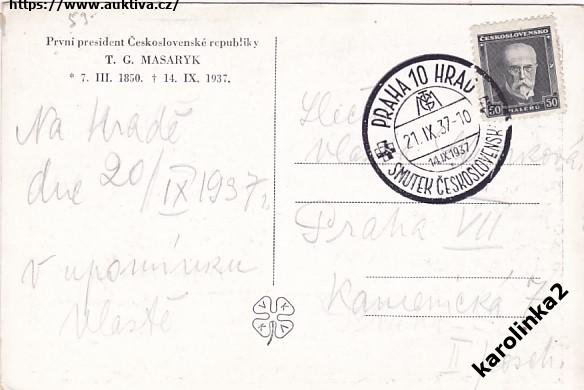 https://www.auktiva.cz/
53.
První president Československé republiky
T. G. MASARYK
* 7. III. 1850. † 14. IX. 1937.
Na Hradě
dne 20/IX 1937.
v upomínku
vlastě
ČESKOSLOVENSKO
50 HALÉŘŮ 50
PRAHA 10 HRAD
21.IX.37-10
14.IX.1937
SMUTEK ČESKOSLOVENSKA
Praha VII
Kamenická
II
karolinka2